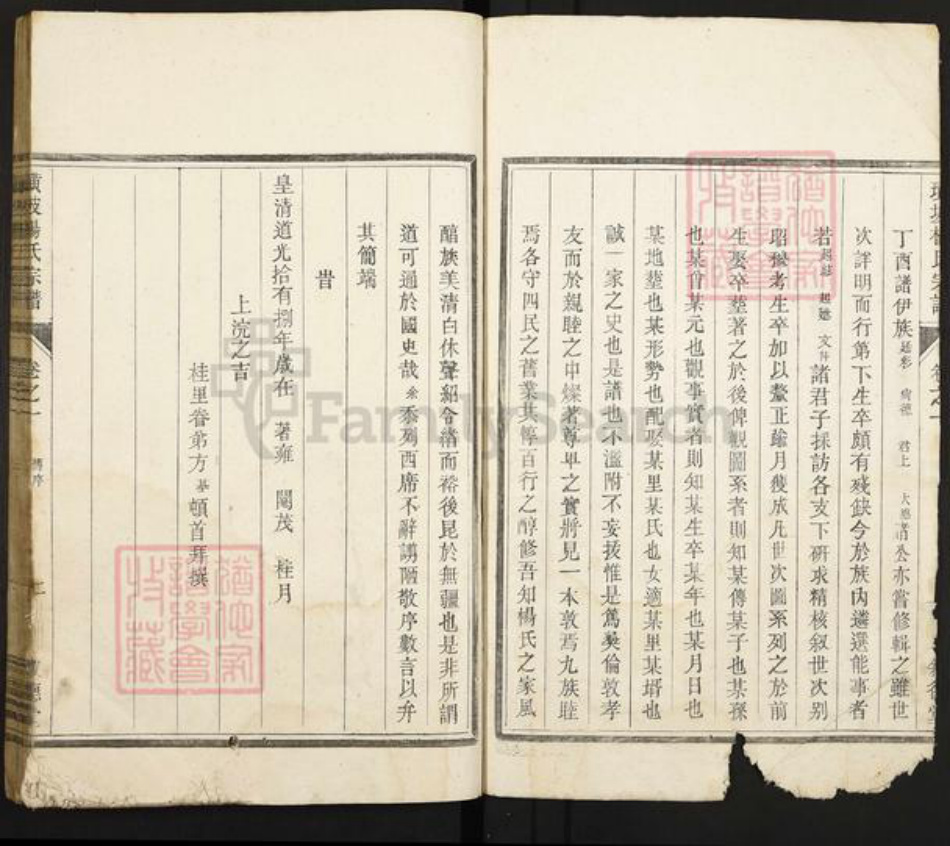 丁酉譜伊族廷彩 君上 諸公亦嘗修輯之雖世
次詳明而行第下生卒頗有殘缺今於族內遴選能事者
若 諸君子採訪各支下研求精核叙世次别
昭穆考生卒加以釐正踰月獲成凡世次圖系列之於前
生娶卒塟著之於後俾觀圖系者則知某傳某子也某孫
也某曾某元也觀事實者則知某生卒某年也某月日也
某地塟也某形勢也配娶某里某氏也女適某里某壻也
誠一家之史也是譜也不濫附不妄援惟是篤彜倫敦孝
友而於親睦之中燦著尊卑之實將見一本敦焉九族睦
焉各守四民之舊業共惇百行之醇修吾知楊氏之家風
醕族美清白休聲紹令緒而裕後昆於無疆也是非所謂
道可通於國史哉余忝列西席不辭謭陋敬序數言以弁
其簡端
旹
皇清道光拾有捌年歲在 著雍 閹茂 桂月
上浣之吉
桂里眷弟方 頓首拜撰
黃陂楊氏宗譜 卷之一
FamilySearch